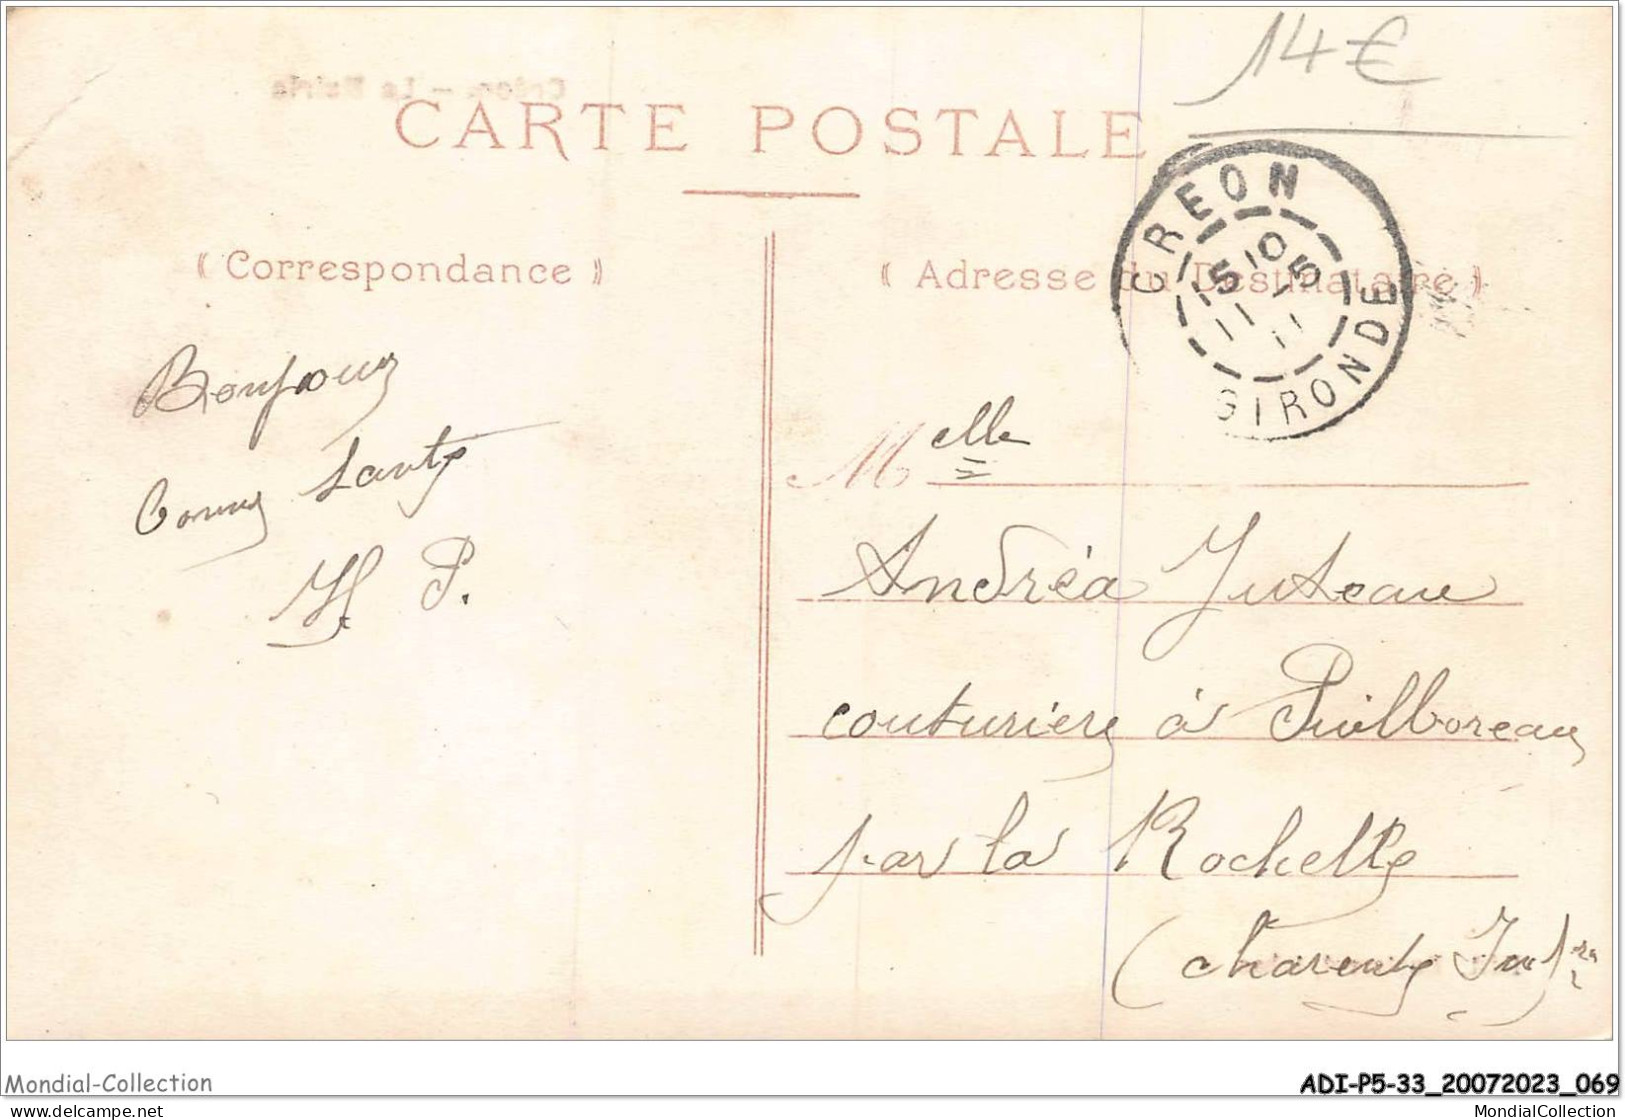 14 €
Créon - La Mairie
CARTE POSTALE
CREON
GIRONDE
15 10
15
11 11
« Correspondance »
« Adresse du Destinataire »
Bonjour
Bonne Santé
H. P.
Melle
Andréa Juteau
couturière à Puilboreau
par la Rochelle
(Charente Infre
Mondial-Collection
ADI-P5-33_20072023_069
www.delcampe.net
MondialCollection